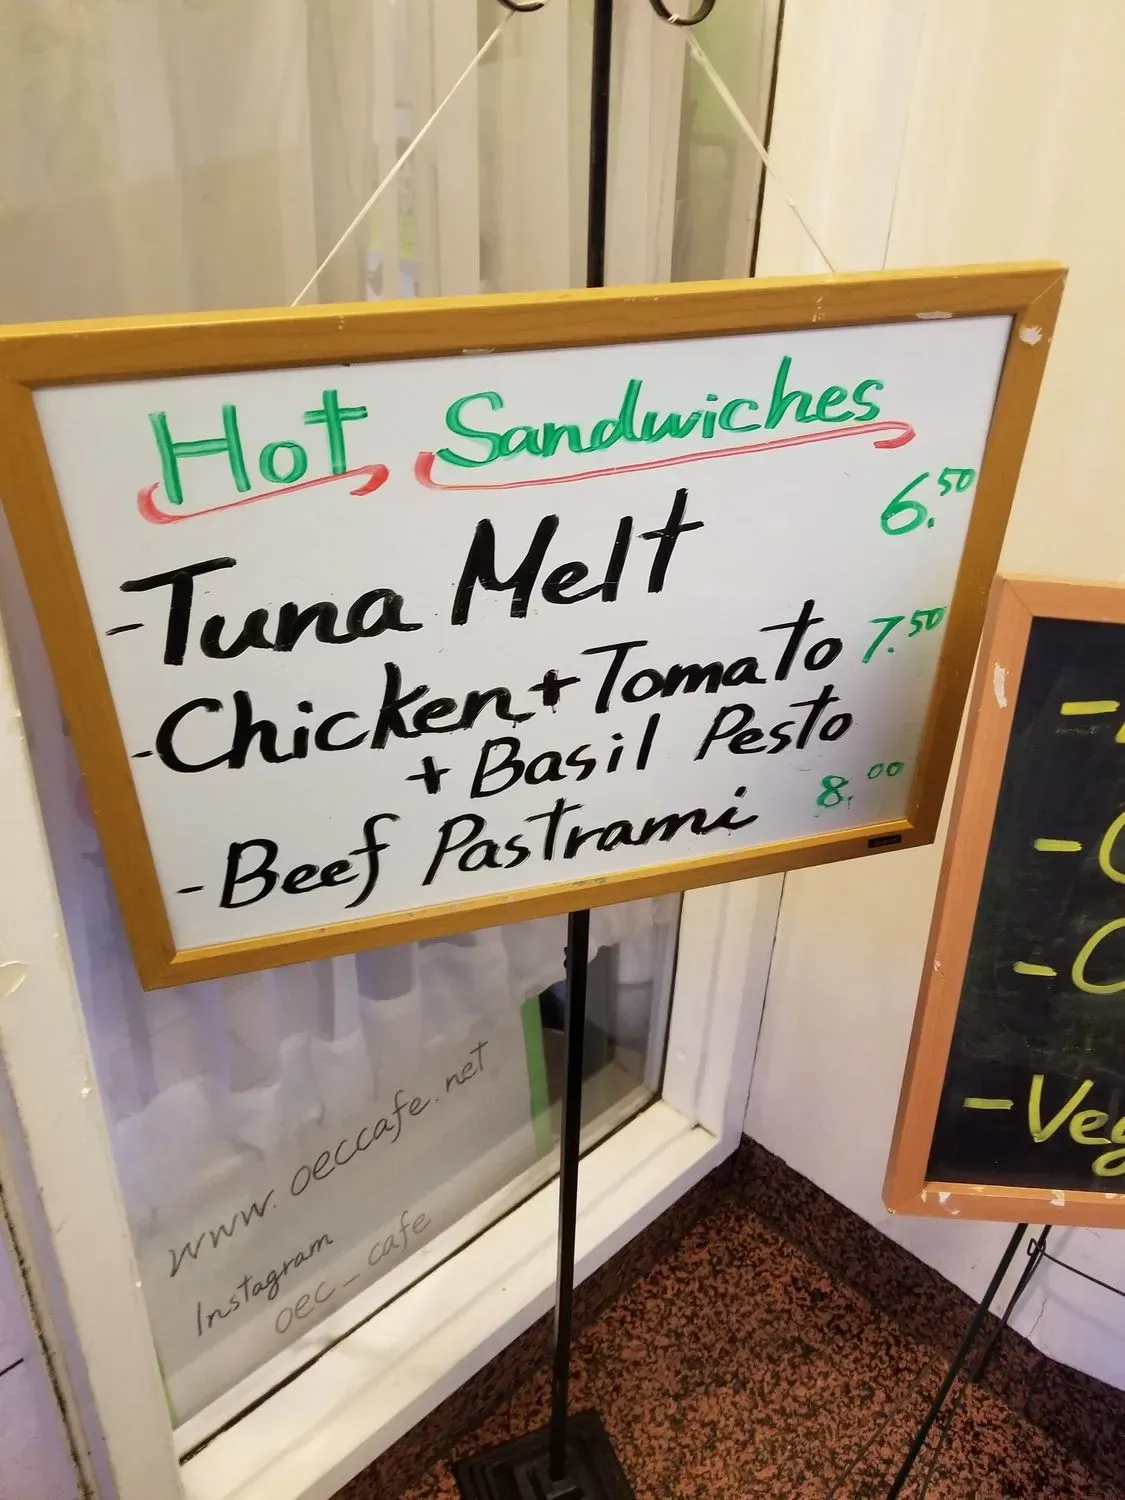 Hot Sandwiches
- Tuna Melt 6.50
- Chicken + Tomato 7.50
+ Basil Pesto
- Beef Pastrami 8.00
www.oeccafe.net
Instagram
oec_cafe
-
-
-
- Veg